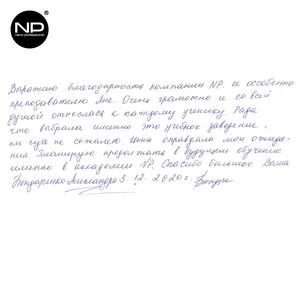 NP
nano professional
Выражаю благодарность компании NP. и особенно
преподавателю Яне. Очень грамотно и со всей
душой отнеслась к каждому ученику. Рада
что выбрала именно это учебное заведение,
ни чуть не сожалею. Цена оправдала мои ожида-
ния. Планирую продолжать в будущем обучение
именно в академии NP. Спасибо большое Ваша
Бондаренко Александра 3. 12. 2020г.